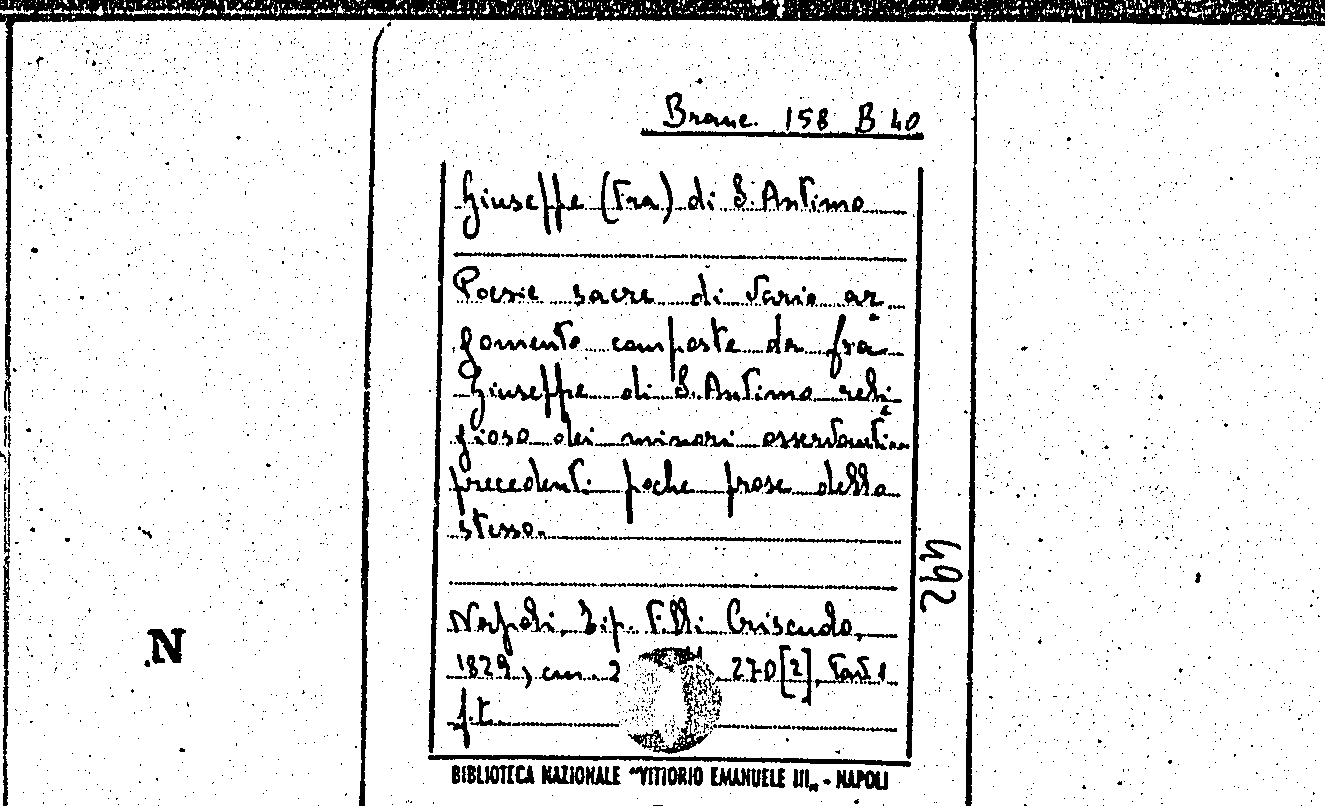 Branc. 158 B 40
Giuseppe (Fra) di S. Antimo
Poesie sacre di vario ar
gomento composte da fra
Giuseppe di S. Antimo reli
gioso dei minori osservanti
precedenti poche prose dello
stesso.
492
Napoli, Tip. F.lli Criscuolo,
N
1829, cm. 2 270 [2], tav. 1
f.t.
BIBLIOTECA NAZIONALE "VITTORIO EMANUELE III„ - NAPOLI